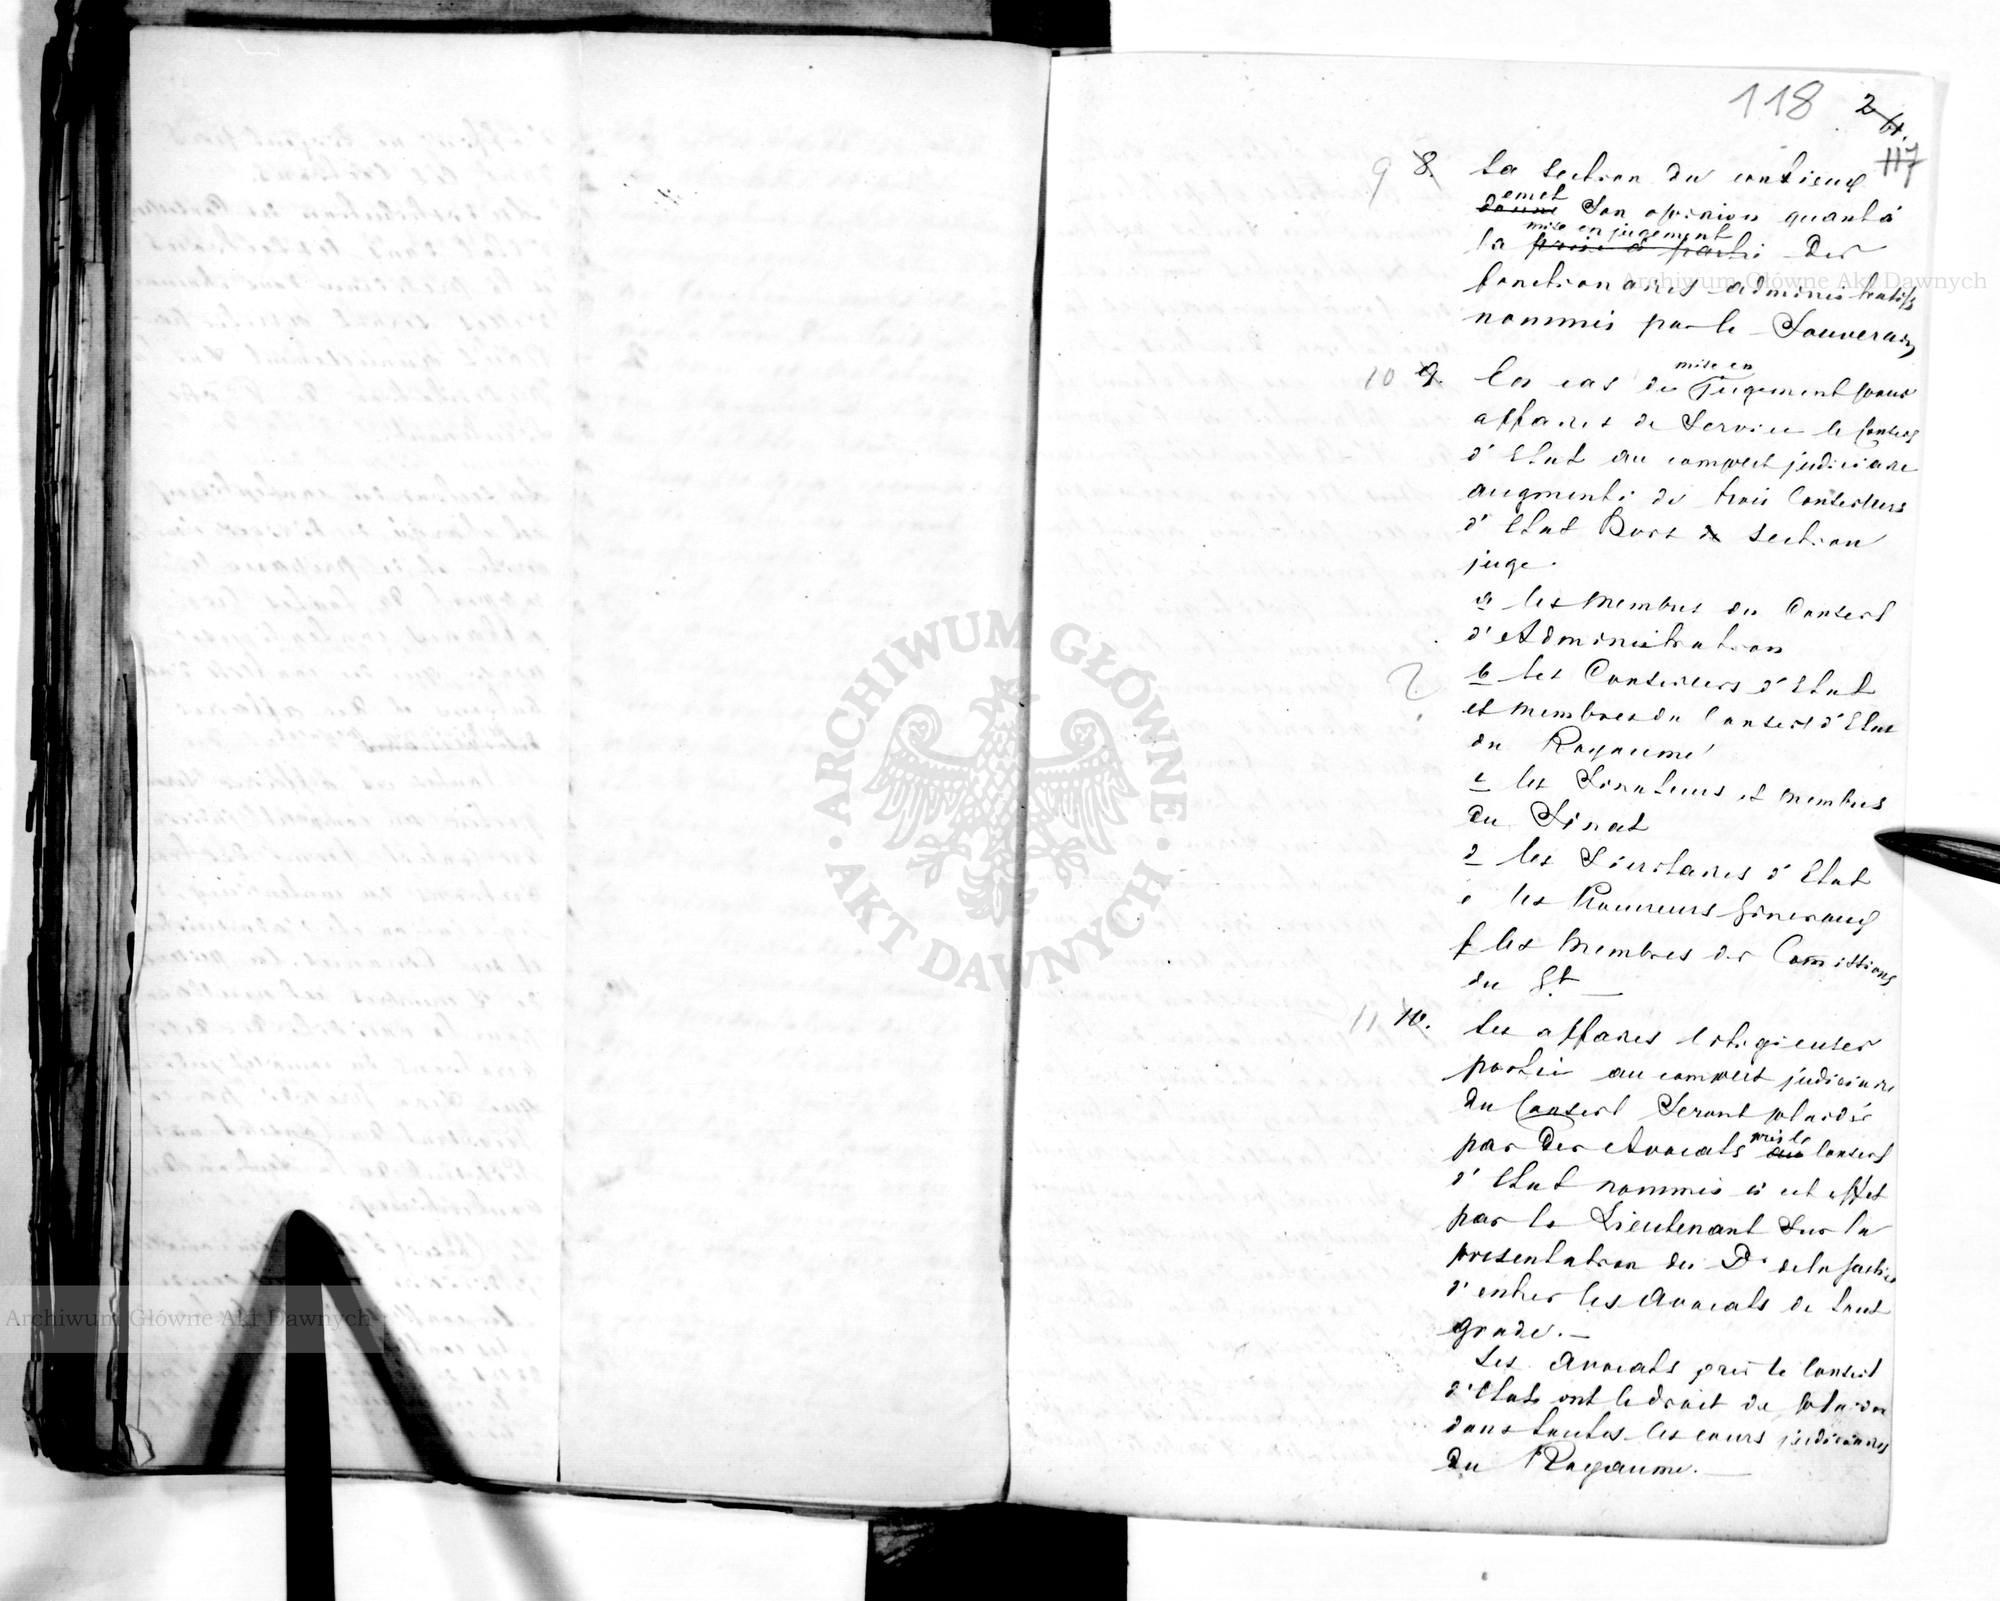 118
2
117
9 8. La Section du contieux
emet
donne Son opinion quant à
mise en jugement
la prise à partie des
fonctionaires administratifs
nommés par le Souverain
mise en
10 9. Les cas de jugement pour
affaires de Service le Conseil
d'Etat au complet judiciaire
augmenté de trois Conseillers
d'Etat hors de Section
juge.
a les Membres du Conseil
d'Administration
? b les Conseillers d'Etat
et Membres du Conseil d'Etat
du Royaume
c les Sénateurs et membres
du Sénat
d les Sécrétaires d'Etat
e les Procureurs Généraux
f les Membres des Comissions
du Gt
11 10. Les affaires litigieuses
portées au complet judiciaire
du Conseil Seront plaidés
près le
par des Avocats au Conseil
d'Etat nommés à cet effet
par le Lieutenant Sur la
présentation du D. de la Justice
d'entre les Avocats de tout
grade.
Les Avocats près le Conseil
d'Etat ont le droit de plaider
dans toutes les cours judiciaires
du Royaume.
ARCHIWUM GŁÓWNE
AKT DAWNYCH
Archiwum Główne Akt Dawnych
Archiwum Główne Akt Dawnych